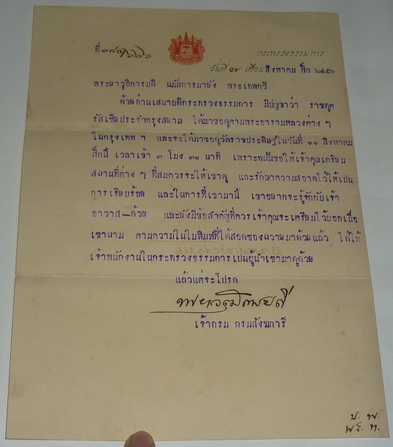 ที่ ๑๙๑/๖๖๖๐
กระทรวงธรรมการ
วันที่ ๗ เดือน สิงหาคม ศก ๒๔๕๖
พระยาวุฑิการบดี นมัสการมายัง พระเทพกวี
ด้วยท่านเสนาบดีกระทรวงธรรมการ มีบัญชาว่า ราชทูต
รัสเซียประจำกรุงสยาม ได้มาขอดูตามพระอารามหลวงต่าง ๆ
ในกรุงเทพ ฯ และจะได้มาขอดูวัดราชประดิษฐ์ในวันที่ ๑๑ สิงหาคม
ศกนี้ เวลาเช้า ๓ โมง ๓๐ นาที เพราะฉนั้นขอให้เจ้าคุณเตรียม
สถานที่ต่าง ๆ ที่สมควรจะให้เขาดู และรักษาความสอาดไว้ให้เปน
การเรียบร้อย และในการที่เขามานี้ เขาอยากจะรู้จักกับเจ้า
อาวาศ-ด้วย และยังมีข้อสำคัญที่ควรเจ้าคุณจะเตรียมไว้บอกเมื่อ
เขาถาม ตามความในใบพิมพ์ที่ได้สอดซองถวายมาด้วยแล้ว ได้ให้
เจ้าพนักงานในกระทรวงธรรมการเปนผู้นำเขามาดูด้วย
แล้วแต่จะโปรด
พระยาวุฑิการบดี
เจ้ากรม กรมสังฆการี
ป. พ.
พ.ร. ท.